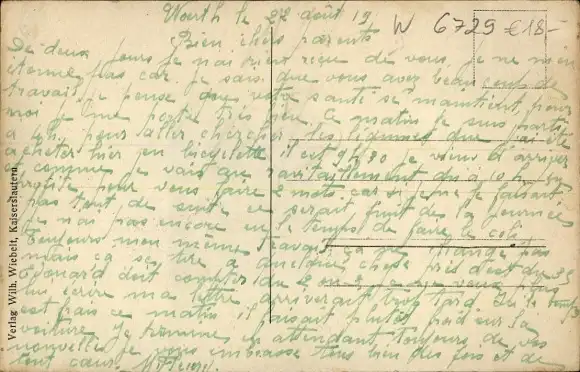 Wœrth le 22 août 19
W 6729 €18-
Bien chers parents
De deux jours je n'ai rien reçu de vous, je ne m'en
étonne pas car je sais que vous avez beaucoup de
travail, je pense que votre santé se maintient, pour
moi je me porte très bien. Ce matin je suis parti
à 4h pour aller chercher les légumes que j'ai été
acheter hier en bicyclette il est 9h30 je viens d'arriver
et comme je vais au ravitaillement à 10 h j'en
profite pour vous faire 2 mots car si je ne le faisais
pas tout de suite ce serait fini des journées
je n'ai pas encore eu le temps de faire le colis
toujours mon même travail ça ne change pas
mais ça se tire à quelques chose près
Edouard doit compter du je ne veux plus
lui écrire ma lettre arriverait trop tard
est bon ce matin il faisait plutôt froid sur la
voiture. Je termine en attendant toujours de vos
nouvelles je vous embrasse tous bien des fois et de
tout cœur
Verlag Wilh. Wiebelt, Kaiserslautern